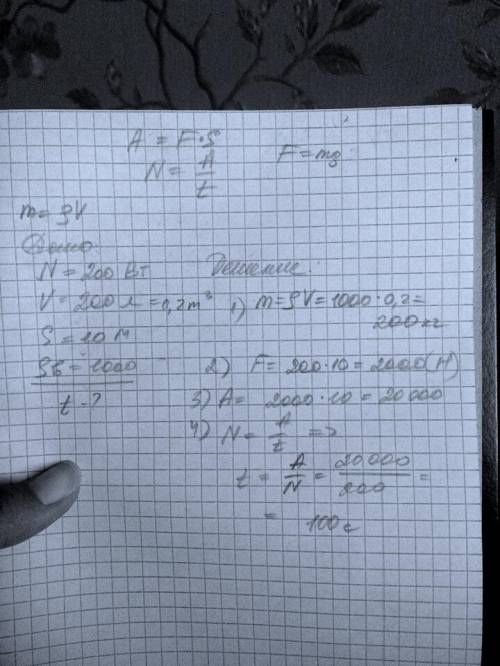 A = F·S
N = A/t
F = mg
m = ρV
Дано
N = 200 Вт
V = 200 л = 0,2 м³
S = 10 м
ρв = 1000
t - ?
Решение:
1) m = ρV = 1000·0,2 =
200 кг
2) F = 200·10 = 2000 (Н)
3) A = 2000·10 = 20000
4) N = A/t =>
t = A/N = 20000/200 =
= 100 с